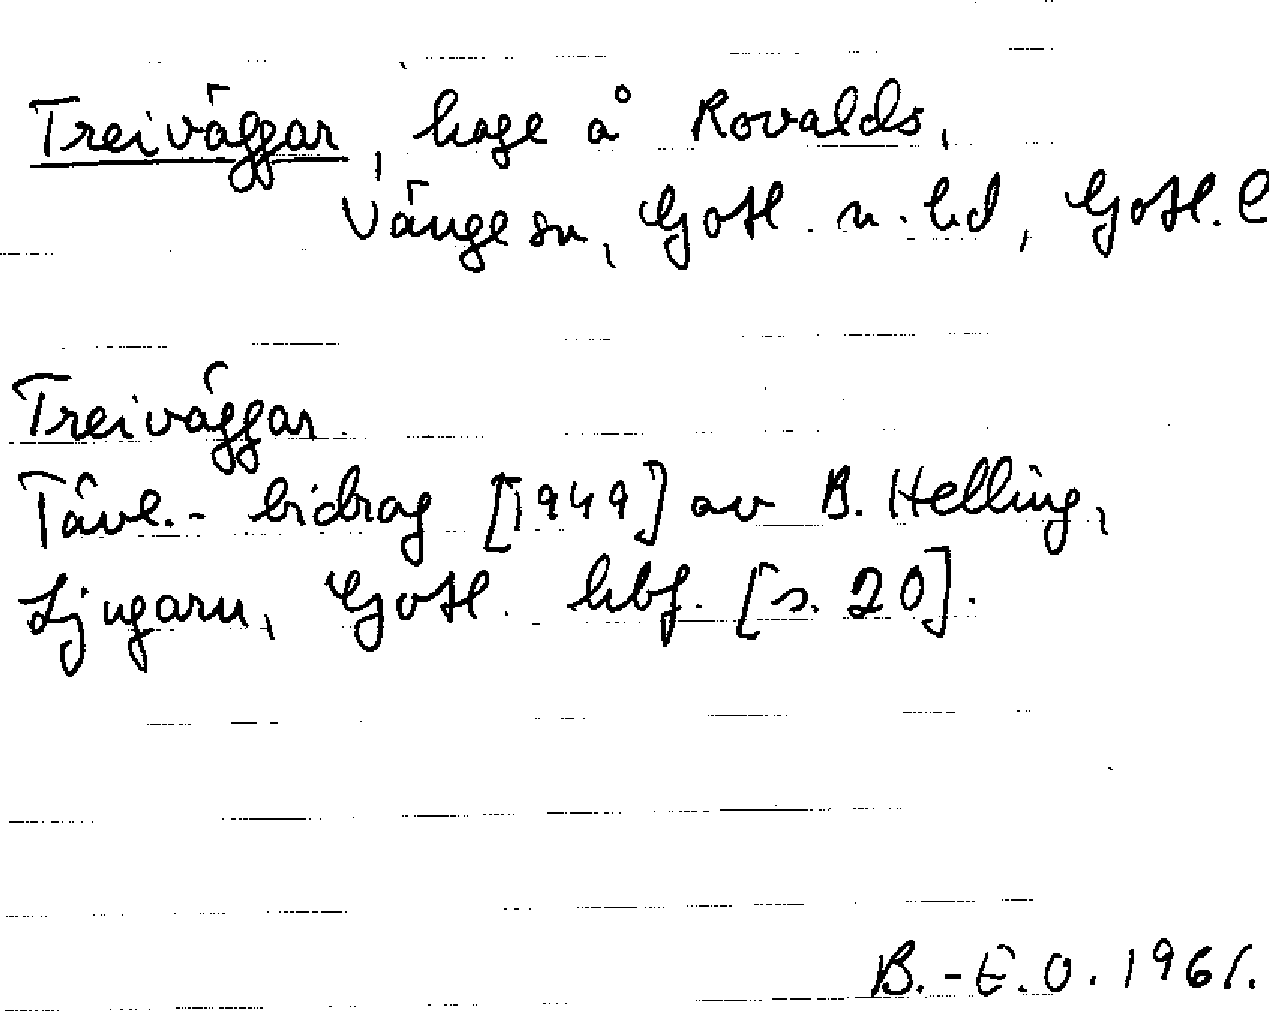 Treiväggar, hage å Rovalds,
Vänge sn, Gotl. n. hd, Gotl. l
Treiväggar.
Tävl.- bidrag [1949] av B. Helling,
Ljugarn, Gotl. hbf. [s. 20].
B.-E.O. 1961.